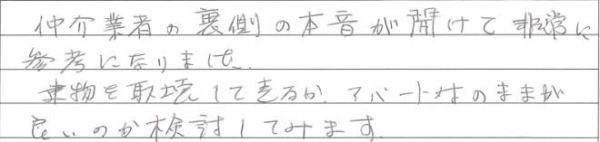 仲介業者の裏側の本音が聞けて非常に
参考になりました。
建物を取壊して売るか、アパート付のままが
良いのか検討してみます